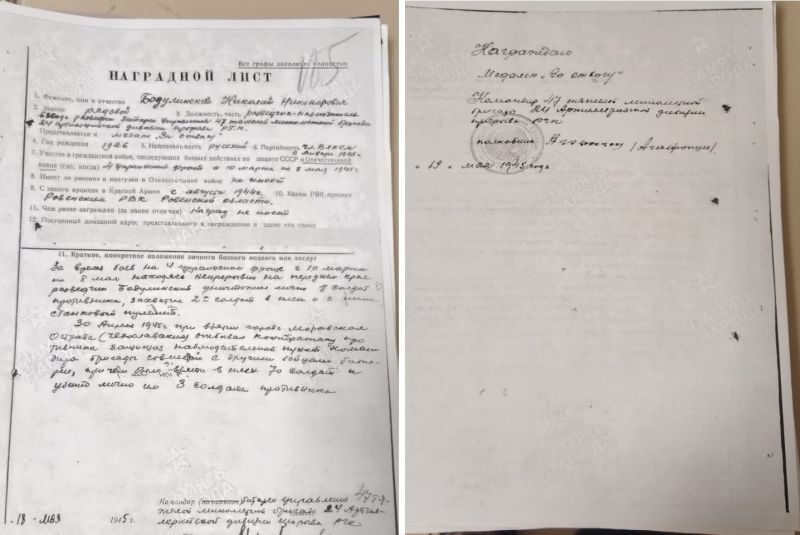 Все графы заполнять полностью
105
НАГРАДНОЙ ЛИСТ
1. Фамилия, имя и отчество Бодулинский Николай Никонорович
2. Звание рядовой 3. Должность, часть разведчик-наблюдатель
взвода разведки батареи управления 47 тяжелой минометной бригады
24 артиллерийской дивизии прорыва РГК.
Представляется к медали „За отвагу"
4. Год рождения 1926 5. Национальность русский 6. Партийность чл. ВЛКСМ
с января 1945г.
7. Участие в гражданской войне, последующих боевых действиях по защите СССР и Отечественной
войне (где, когда) 4 Украинский фронт с 10 марта по 8 мая 1945г.
8. Имеет ли ранения и контузии в Отечественной войне не имеет
9. С какого времени в Красной Армии с августа 1944г. 10. Каким РВК призван
Ровенским РВК Ровенской области.
11. Чем ранее награжден (за какие отличия) Наград не имеет
12. Постоянный домашний адрес представляемого к награждению и адрес его семьи
11. Краткое, конкретное изложение личного боевого подвига или заслуг
За время боев на 4 украинском фронте с 10 марта
по 8 мая находясь непрерывно на переднем крае
разведчик Бодулинский уничтожил лично 8 солдат
противника, захватив 2х солдат в плен и с ними
станковый пулемет.
30 Апреля 1945г. при взятии города Моравская
Острава (Чехословакия) отбивая контратаку про
тивника защищая наблюдательный пункт коман
дира бригады совместно с другими бойцами бата-
реи, при чем было взято в плен 70 солдат и
убито лично им 3 солдата противника
Командир батареи управления 47 тя-
желой минометной бригады 24 Артил-
лерийской дивизии прорыва РГК
„18" МАЯ 1945 г.
Награждено
Медалью „За отвагу"
Командир 47 тяжелой минометной
бригады 24 Артиллерийской дивизии
прорыва РГК
полковник /Агафонцев/.
„19" мая 1945 года